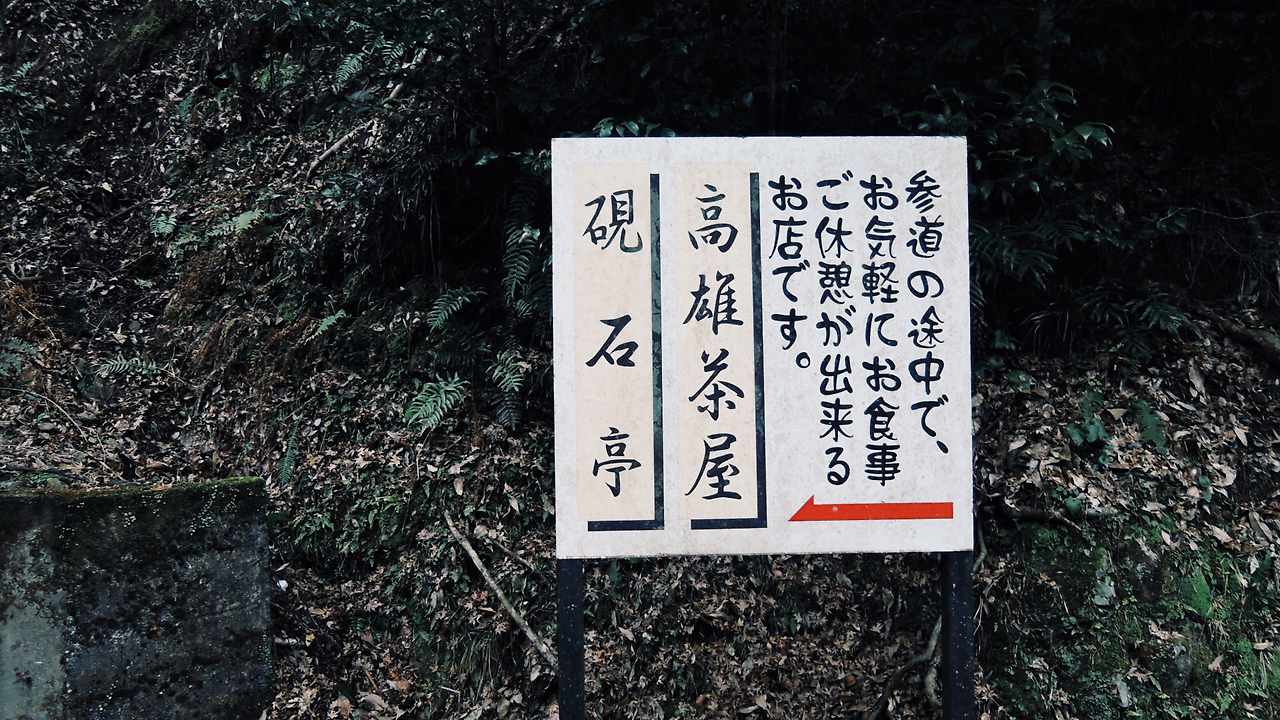 参道の途中で、
お気軽にお食事
ご休憩が出来る
お店です。
高雄茶屋
硯石亭